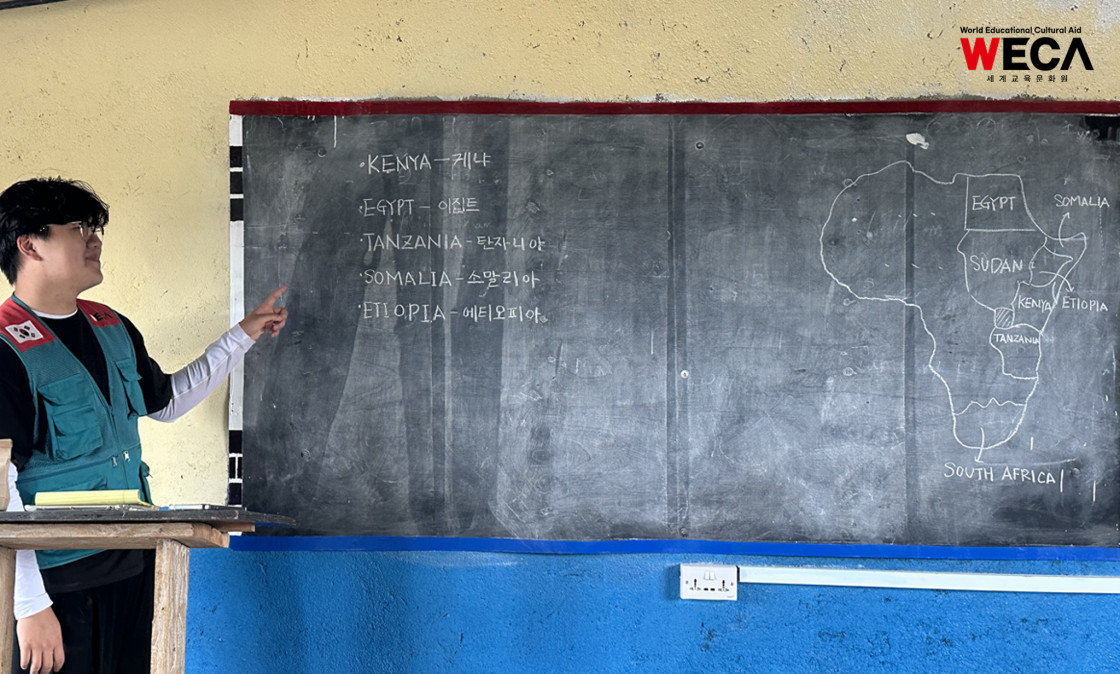 World Educational Cultural Aid
WECA
세계교육문화원
·KENYA-케냐
·EGYPT-이집트
·TANZANIA-탄자니아
·SOMALIA-소말리아
·ETIOPIA-에티오피아
EGYPT
SOMALIA
SUDAN
KENYA
ETIOPIA
TANZANIA
SOUTH AFRICA